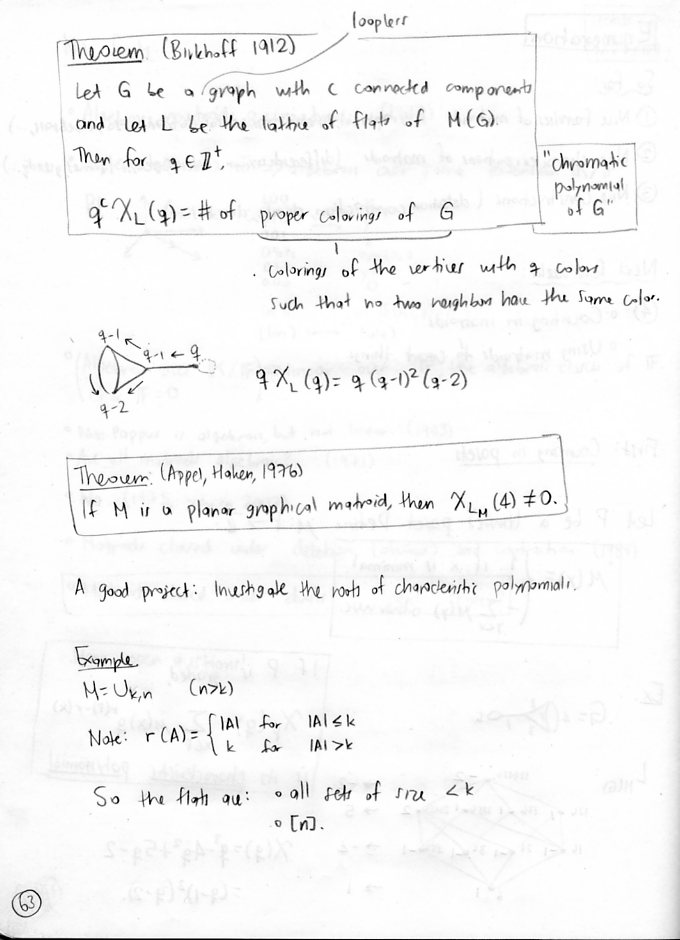 loopless
Theorem (Birkhoff 1912)
Let G be a graph with c connected components
and let L be the lattice of flats of M(G).
Then for q ∈ ℤ⁺,
q^c χ_L(q) = # of proper colorings of G
"chromatic
polynomial
of G"
. colorings of the vertices with q colors
such that no two neighbors have the same color.
q-1
q-1 ← q
q-2
q χ_L(q) = q (q-1)² (q-2)
Theorem: (Appel, Haken, 1976)
If M is a planar graphical matroid, then χ_{L_M}(4) ≠ 0.
A good project: Investigate the roots of characteristic polynomials.
Example
M = U_{k,n} (n>k)
Note: r(A) = { |A| for |A| ≤ k
k for |A| > k
So the flats are: ∘ all sets of size < k
∘ [n].
63